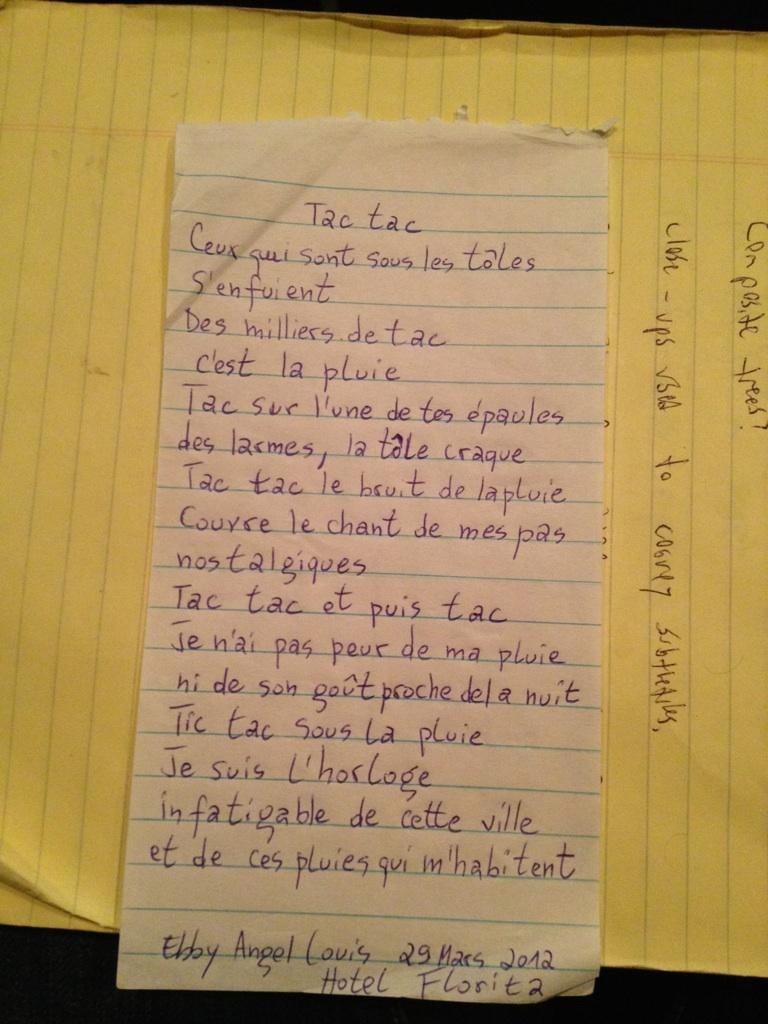 Tac tac
Ceux qui sont sous les tôles
S'enfuient
Des milliers de tac
c'est la pluie
Tac sur l'une de tes épaules
des larmes, la tôle craque
Tac tac le bruit de la pluie
Couvre le chant de mes pas
nostalgiques
Tac tac et puis tac
Je n'ai pas peur de ma pluie
ni de son goût proche de la nuit
Tic tac sous la pluie
Je suis L'horloge
infatigable de cette ville
et de ces pluies qui m'habitent
Ebby Angel Louis 29 Mars 2012
Hotel Florita
Composite trees?
close-ups used to convey subtleties.